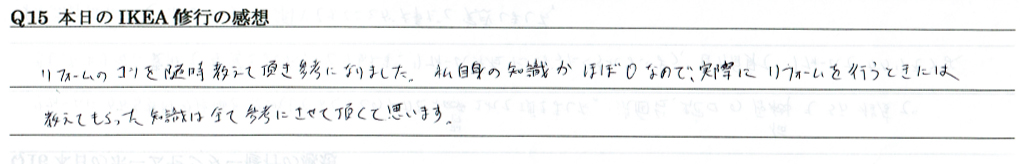 Q15 本日のIKEA修行の感想
リフォームのコツを随時教えて頂き参考になりました。私自身の知識がほぼ0なので、実際にリフォームを行うときには
教えてもらった知識は全て参考にさせて頂くて思います。